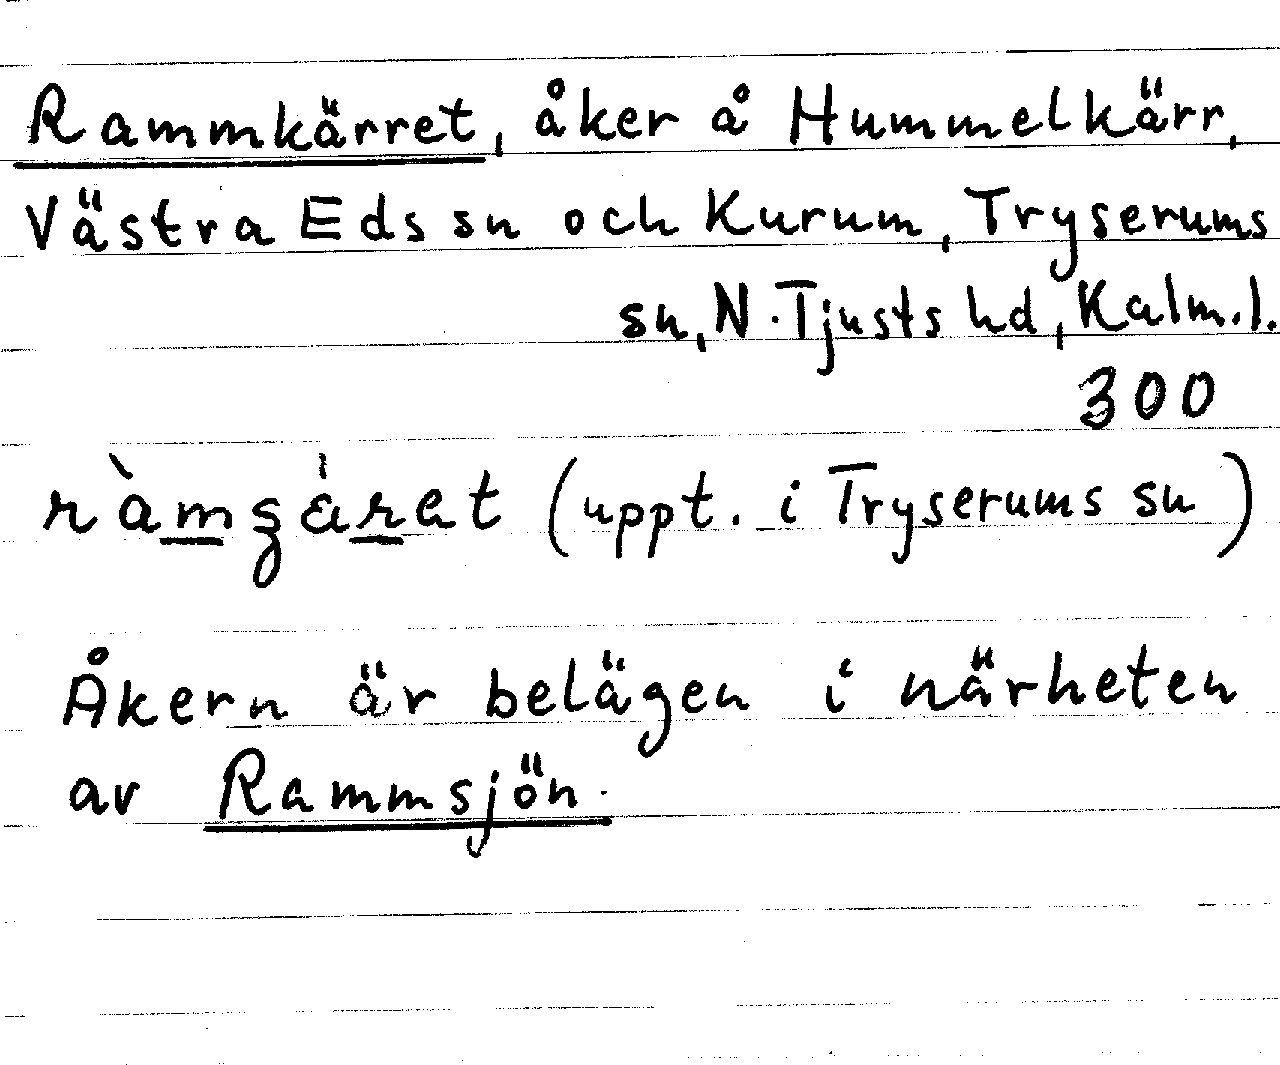 Rammkärret, åker å Hummelkärr,
Västra Eds sn och Kurum, Tryserums
sn, N. Tjusts hd, Kalm.l.
300
(uppt. i Tryserums sn)
Åkern är belägen i närheten
av Rammsjön.